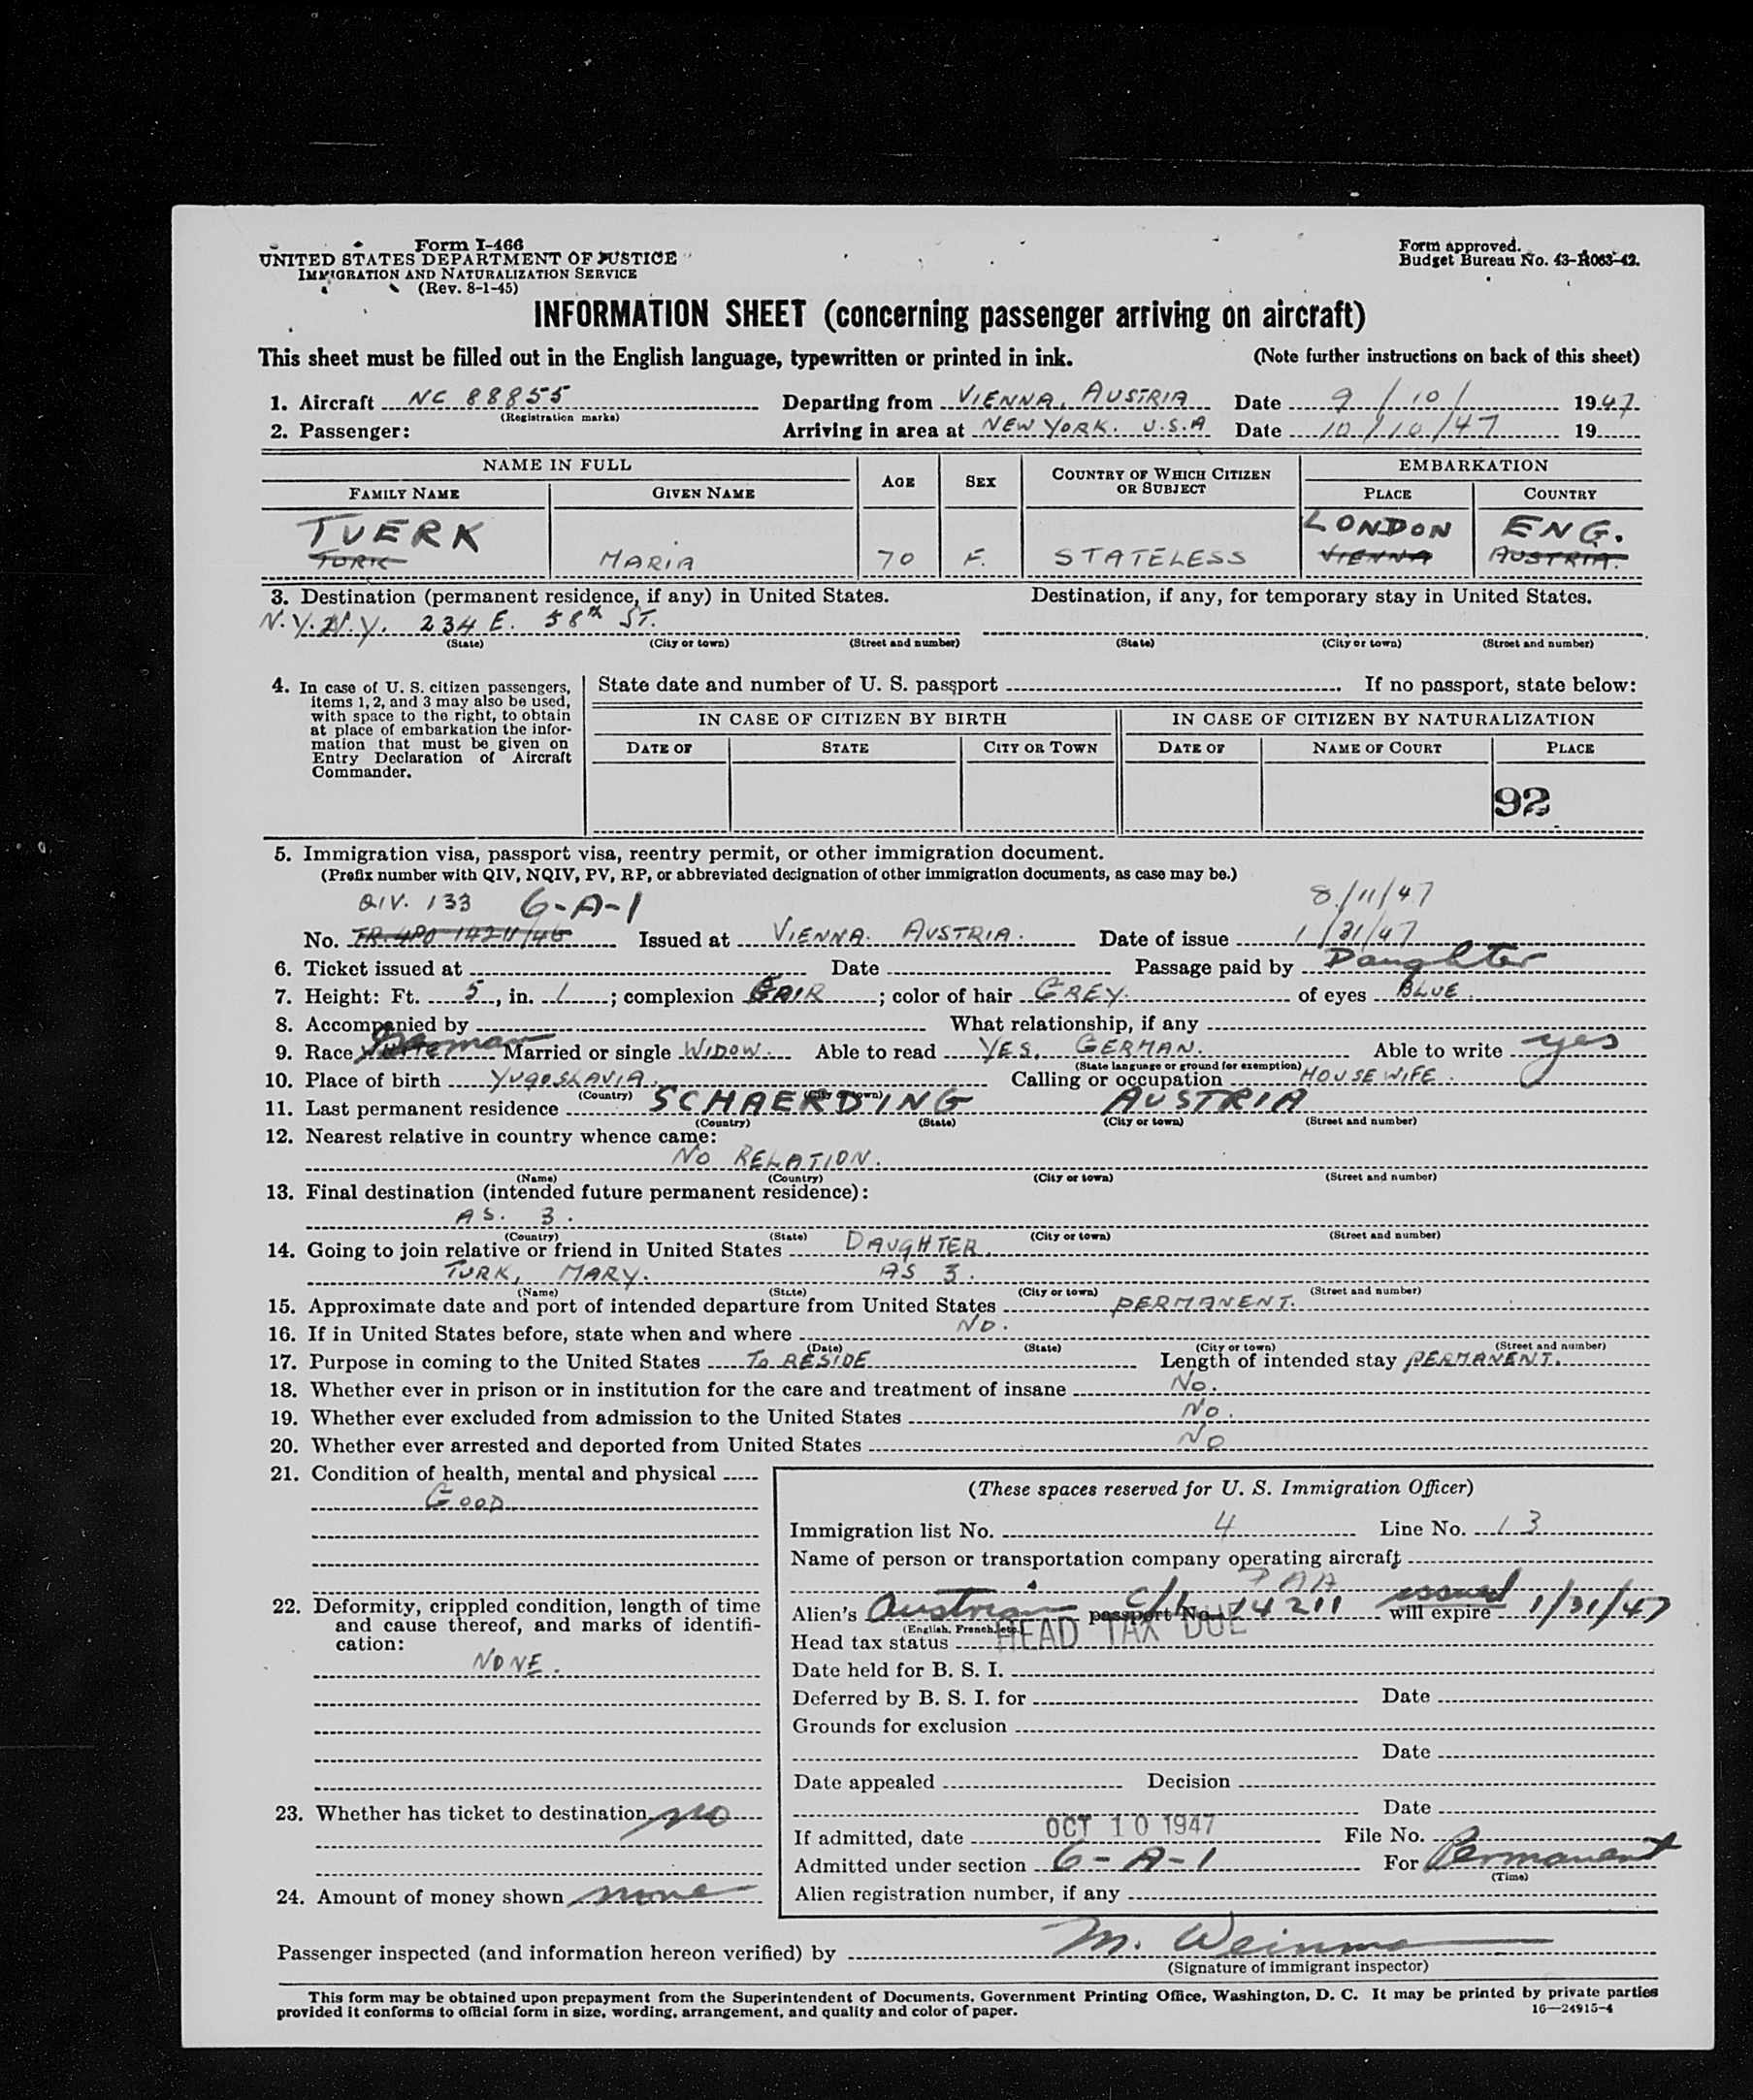 Form I-466
UNITED STATES DEPARTMENT OF JUSTICE
IMMIGRATION AND NATURALIZATION SERVICE
(Rev. 8-1-45)
Form approved.
Budget Bureau No. 43-R063-42.
INFORMATION SHEET (concerning passenger arriving on aircraft)
This sheet must be filled out in the English language, typewritten or printed in ink. (Note further instructions on back of this sheet)
1. Aircraft NC 88855 Departing from VIENNA, AUSTRIA Date 9/10/ 1947.
(Registration marks)
2. Passenger: Arriving in area at NEW YORK. U.S.A Date 10/10/47 19
NAME IN FULL AGE SEX COUNTRY OF WHICH CITIZEN OR SUBJECT EMBARKATION
FAMILY NAME GIVEN NAME PLACE COUNTRY
TUERK LONDON ENG.
TURK MARIA 70 F. STATELESS VIENNA AUSTRIA.
3. Destination (permanent residence, if any) in United States. Destination, if any, for temporary stay in United States.
N.Y. N.Y. 234 E. 58th ST.
(State) (City or town) (Street and number) (State) (City or town) (Street and number)
4. In case of U. S. citizen passengers, items 1, 2, and 3 may also be used, with space to the right, to obtain at place of embarkation the information that must be given on Entry Declaration of Aircraft Commander.
State date and number of U. S. passport If no passport, state below:
IN CASE OF CITIZEN BY BIRTH IN CASE OF CITIZEN BY NATURALIZATION
DATE OF STATE CITY OR TOWN DATE OF NAME OF COURT PLACE
92
5. Immigration visa, passport visa, reentry permit, or other immigration document.
(Prefix number with QIV, NQIV, PV, RP, or abbreviated designation of other immigration documents, as case may be.)
QIV. 133 6-A-1 8/11/47
No. TR. 14211/46 Issued at VIENNA. AUSTRIA. Date of issue 1/31/47
6. Ticket issued at Date Passage paid by Daughter
7. Height: Ft. 5, in. 1; complexion FAIR; color of hair GREY. of eyes BLUE.
8. Accompanied by What relationship, if any
9. Race German Married or single WIDOW. Able to read YES. GERMAN. Able to write yes
(State language or ground for exemption)
10. Place of birth YUGOSLAVIA. Calling or occupation HOUSEWIFE.
(Country) (City or town)
11. Last permanent residence SCHAERDING AUSTRIA
(Country) (State) (City or town) (Street and number)
12. Nearest relative in country whence came:
NO RELATION.
(Name) (Country) (City or town) (Street and number)
13. Final destination (intended future permanent residence):
AS. 3.
(Country) (State) (City or town) (Street and number)
14. Going to join relative or friend in United States DAUGHTER.
TURK, MARY. AS 3.
(Name) (State) (City or town) (Street and number)
15. Approximate date and port of intended departure from United States PERMANENT.
16. If in United States before, state when and where NO.
(Date) (State) (City or town) (Street and number)
17. Purpose in coming to the United States TO RESIDE Length of intended stay PERMANENT.
18. Whether ever in prison or in institution for the care and treatment of insane NO.
19. Whether ever excluded from admission to the United States NO.
20. Whether ever arrested and deported from United States NO
21. Condition of health, mental and physical
GOOD
22. Deformity, crippled condition, length of time and cause thereof, and marks of identification:
NONE.
23. Whether has ticket to destination no
24. Amount of money shown none
(These spaces reserved for U. S. Immigration Officer)
Immigration list No. 4 Line No. 13
Name of person or transportation company operating aircraft
PAA
Alien's Austrian passport No. 14211 issued will expire 1/31/47
(English, French, etc.)
Head tax status HEAD TAX DUE
Date held for B. S. I.
Deferred by B. S. I. for Date
Grounds for exclusion
Date
Date appealed Decision
Date
If admitted, date OCT 10 1947 File No.
Admitted under section 6-A-1 For Permanent
(Time)
Alien registration number, if any
Passenger inspected (and information hereon verified) by M.
(Signature of immigrant inspector)
This form may be obtained upon prepayment from the Superintendent of Documents, Government Printing Office, Washington, D. C. It may be printed by private parties
provided it conforms to official form in size, wording, arrangement, and quality and color of paper. 16—24915-4